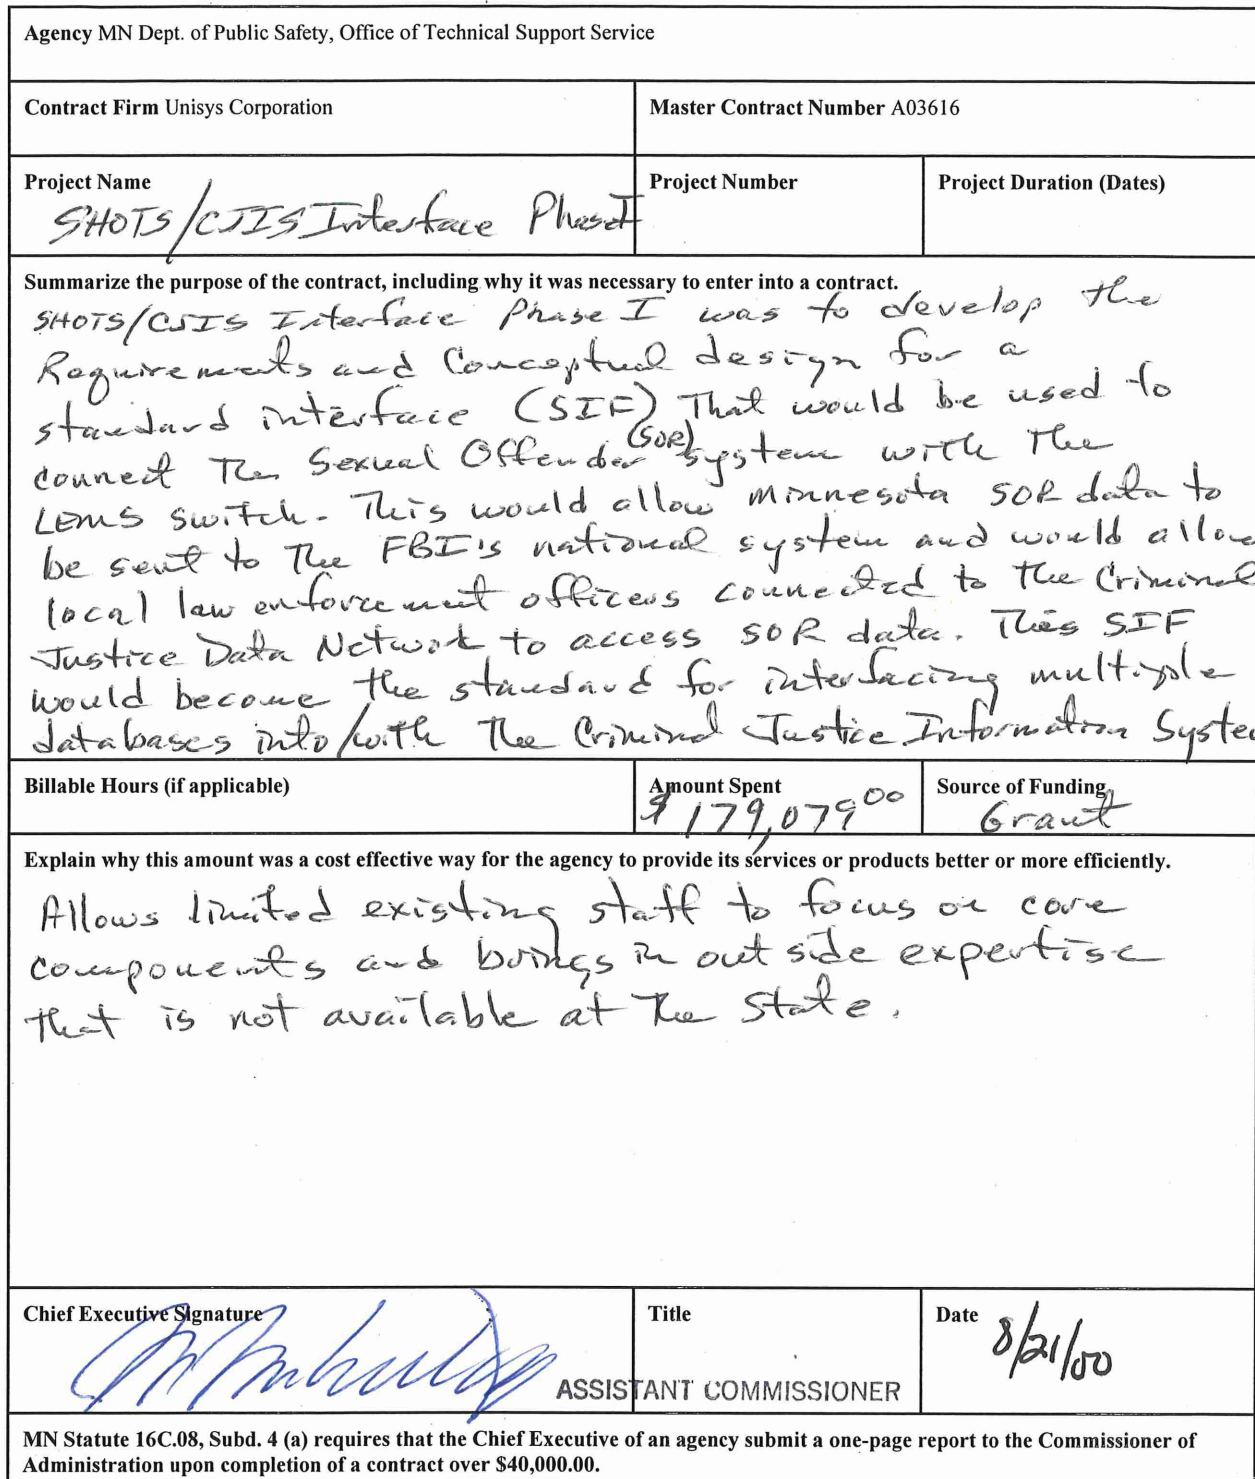 Agency MN Dept. of Public Safety, Office of Technical Support Service
Contract Firm Unisys Corporation
Master Contract Number A03616
Project Name
SHOTS/CJIS Interface Phase I
Project Number
Project Duration (Dates)
Summarize the purpose of the contract, including why it was necessary to enter into a contract.
SHOTS/CJIS Interface Phase I was to develop the
Requirements and Conceptual design for a
standard interface (SIF) That would be used to
connect The Sexual Offender (SOR) system with The
LEMS switch. This would allow Minnesota SOR data to
be sent to The FBI's national system and would allow
local law enforcement officers connected to the Criminal
Justice Data Network to access SOR data. This SIF
would become the standard for interfacing multiple
databases into/with The Criminal Justice Information Syste
Billable Hours (if applicable)
Amount Spent
$179,079.00
Source of Funding
Grant
Explain why this amount was a cost effective way for the agency to provide its services or products better or more efficiently.
Allows limited existing staff to focus on core
components and brings in outside expertise
that is not available at The State.
Chief Executive Signature
Title
ASSISTANT COMMISSIONER
Date
8/21/00
MN Statute 16C.08, Subd. 4 (a) requires that the Chief Executive of an agency submit a one-page report to the Commissioner of
Administration upon completion of a contract over $40,000.00.